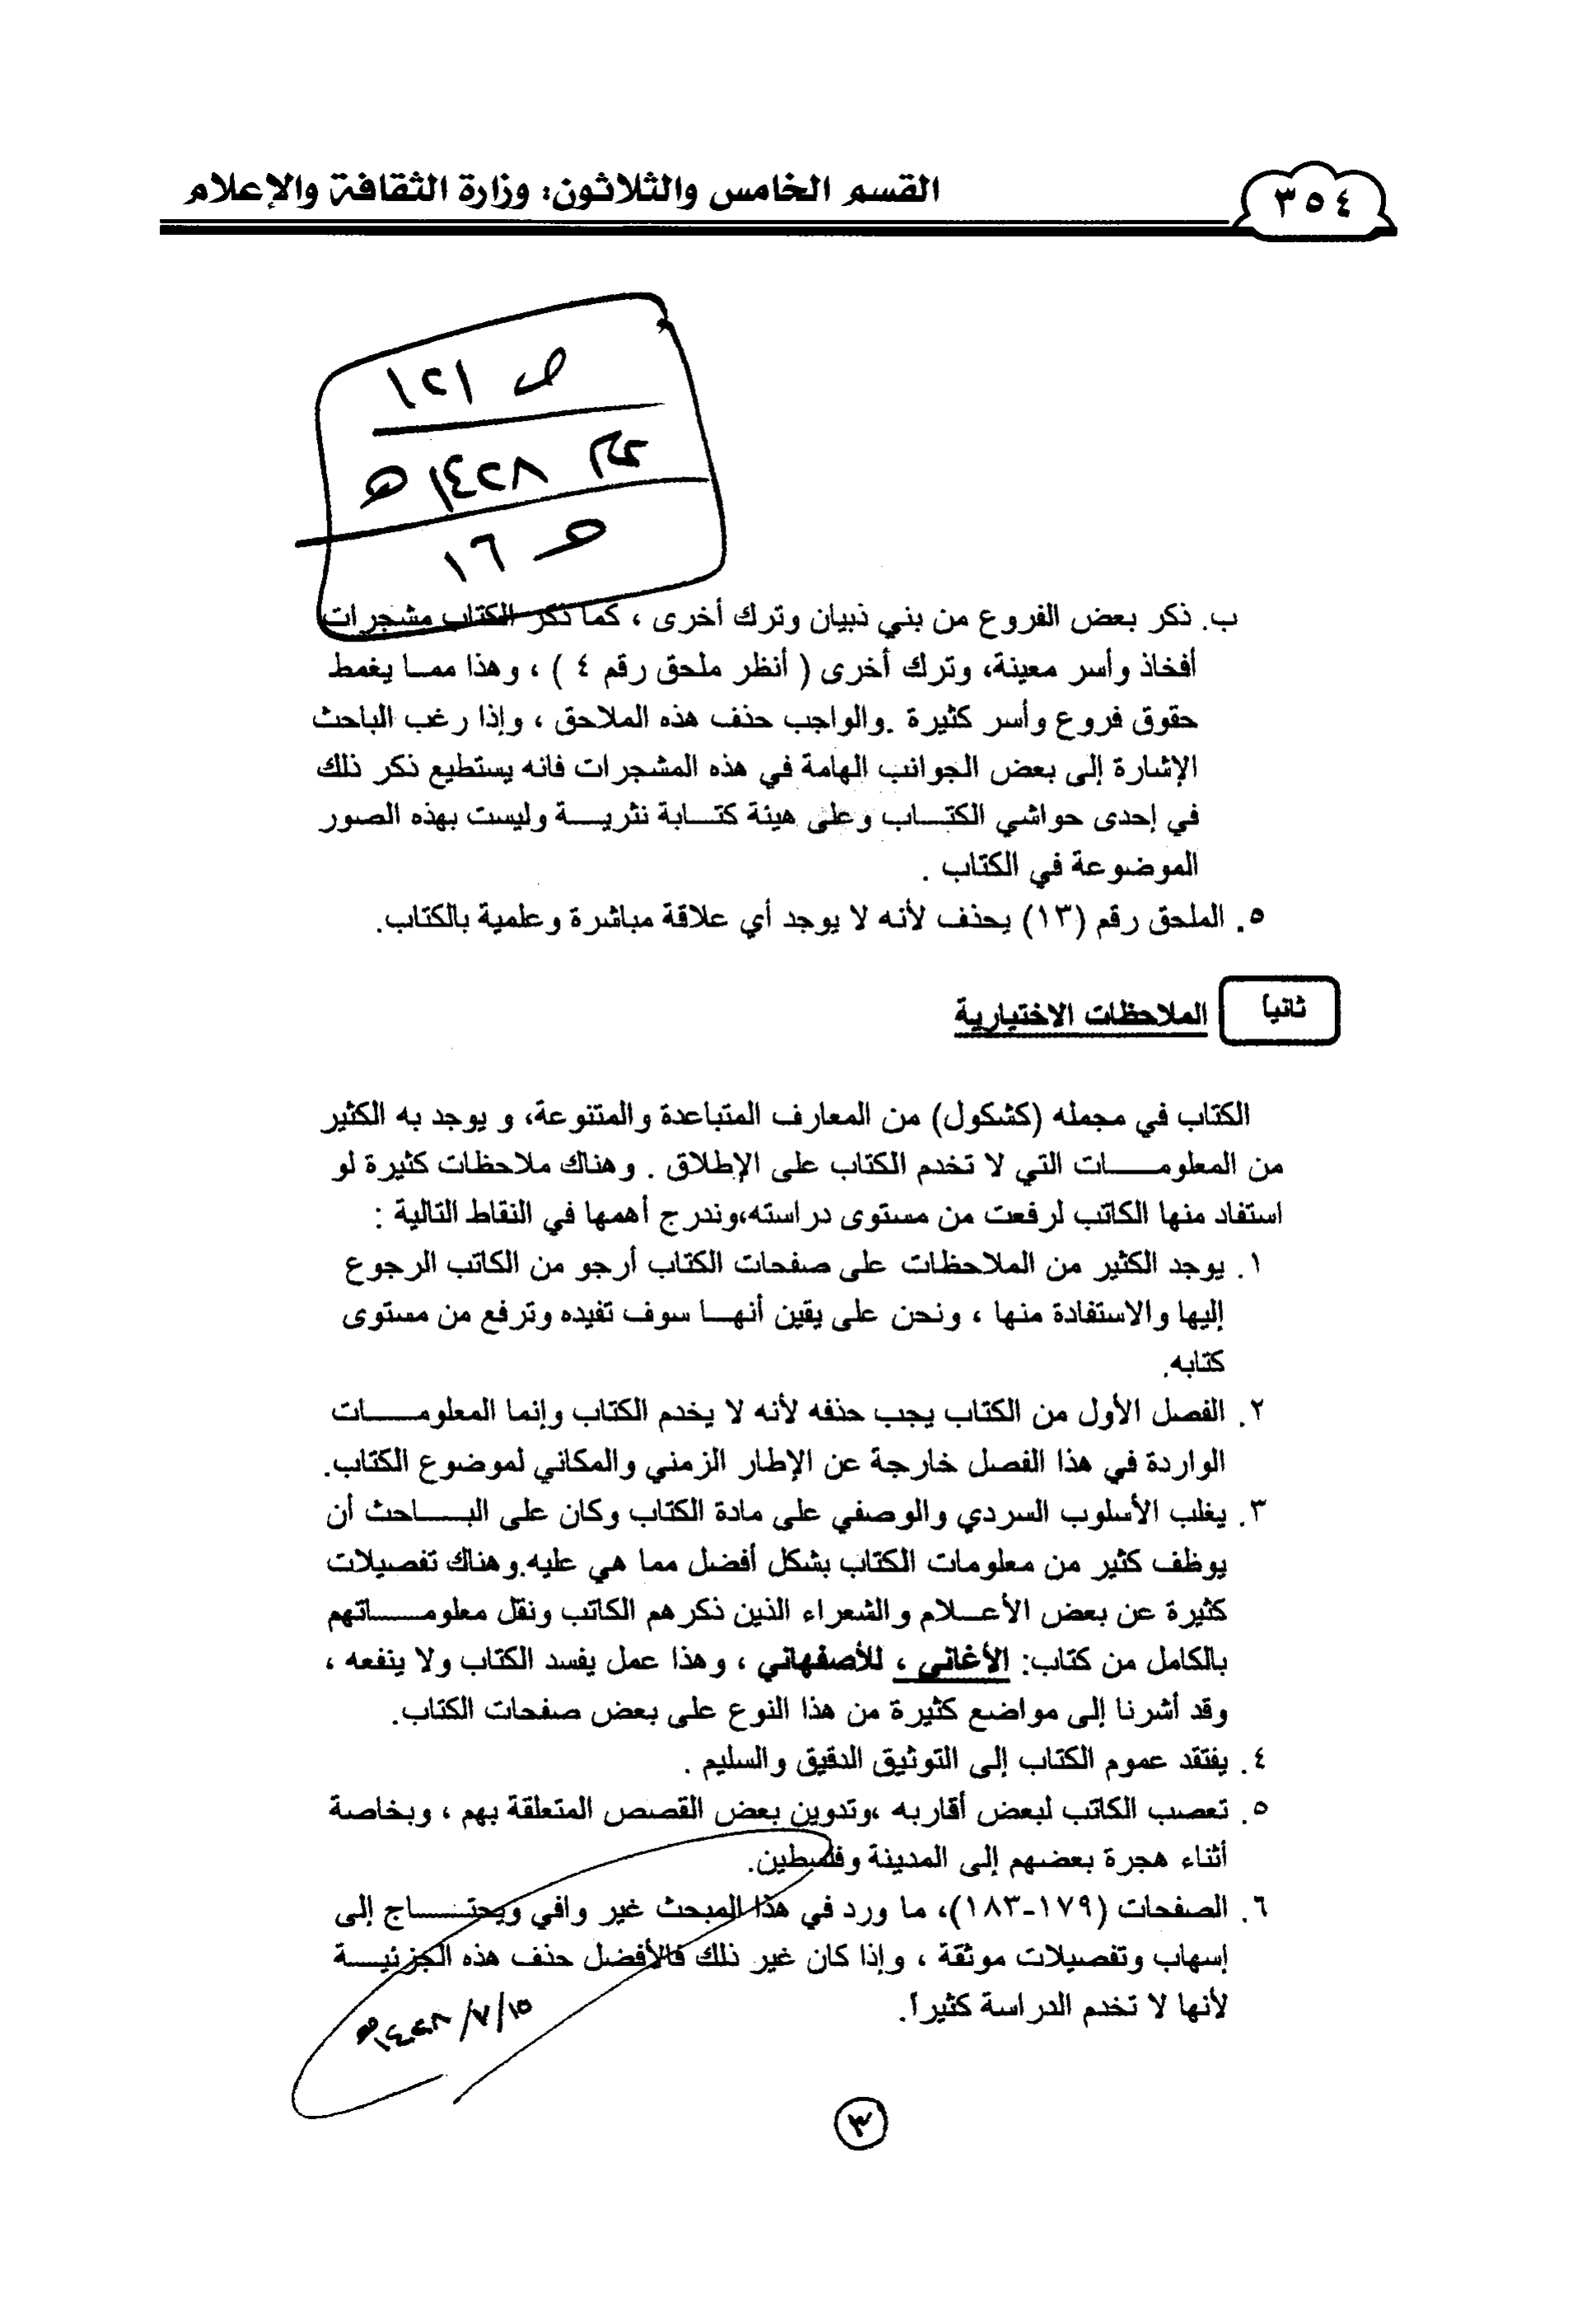 ٣٥٤
القسم الخامس والثلاثون: وزارة الثقافة والإعلام
ص ١٢١
١٤٢٨ هـ
١٦
ب. ذكر بعض الفروع من بني ذبيان وترك أخرى ، كما ذكر الكتاب مشجرات
أفخاذ وأسر معينة، وترك أخرى ( أنظر ملحق رقم ٤ ) ، وهذا ممـا يغمط
حقوق فروع وأسر كثيرة .والواجب حذف هذه الملاحق ، وإذا رغب الباحث
الإشارة إلى بعض الجوانب الهامة في هذه المشجرات فانه يستطيع ذكر ذلك
في إحدى حواشي الكتـــاب وعلى هيئة كتـــابة نثريـــة وليست بهذه الصور
الموضوعة في الكتاب .
٥. الملحق رقم (١٣) يحذف لأنه لا يوجد أي علاقة مباشرة وعلمية بالكتاب.
ثانيا الملاحظات الاختيارية
الكتاب في مجمله (كشكول) من المعارف المتباعدة والمتنوعة، و يوجد به الكثير
من المعلومـــــات التي لا تخدم الكتاب على الإطلاق . وهناك ملاحظات كثيرة لو
استفاد منها الكاتب لرفعت من مستوى دراسته،وندرج أهمها في النقاط التالية :
١. يوجد الكثير من الملاحظات على صفحات الكتاب أرجو من الكاتب الرجوع
إليها والاستفادة منها ، ونحن على يقين أنهـــا سوف تفيده وترفع من مستوى
كتابه.
٢. الفصل الأول من الكتاب يجب حذفه لأنه لا يخدم الكتاب وإنما المعلومـــــات
الواردة في هذا الفصل خارجة عن الإطار الزمني والمكاني لموضوع الكتاب.
٣. يغلب الأسلوب السردي والوصفي على مادة الكتاب وكان على البـــــاحث أن
يوظف كثير من معلومات الكتاب بشكل أفضل مما هي عليه.وهناك تفصيلات
كثيرة عن بعض الأعـــلام والشعراء الذين ذكرهم الكاتب ونقل معلومـــــاتهم
بالكامل من كتاب: الأغاني ، للأصفهاني ، وهذا عمل يفسد الكتاب ولا ينفعه ،
وقد أشرنا إلى مواضع كثيرة من هذا النوع على بعض صفحات الكتاب.
٤. يفتقد عموم الكتاب إلى التوثيق الدقيق والسليم .
٥. تعصب الكاتب لبعض أقاربه ،وتدوين بعض القصص المتعلقة بهم ، وبخاصة
أثناء هجرة بعضهم إلى المدينة وفلسطين.
٦. الصفحات (١٧٩-١٨٣)، ما ورد في هذا المبحث غير وافي ويحتـــــاج إلى
إسهاب وتفصيلات موثقة ، وإذا كان غير ذلك فالأفضل حذف هذه الجزئيـــة
لأنها لا تخدم الدراسة كثيراً.
١٥/٧/١٤٢٨هـ
٣